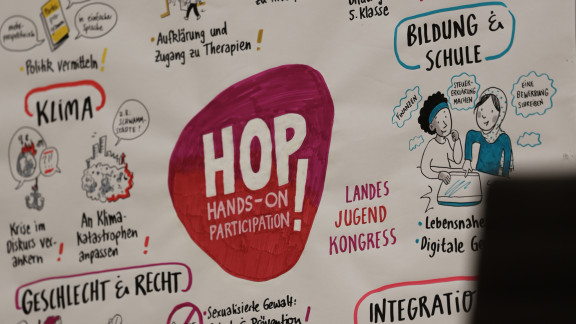 in einfacher
Sprache
Politik vermitteln!
Aufklärung und
Zugang zu Therapien!
5. Klasse
BILDUNG &
SCHULE
KLIMA
z.B.
SCHWAMM-
STÄDTE!
Krise im
Diskurs ver-
ankern!
An Klima-
Katastrophen
anpassen!
HOP!
HANDS-ON
PARTICIPATION
LANDES
JUGEND
KONGRESS
FINANZEN
STEUER-
ERKLÄRUNG
MACHEN
EINE
BEWERBUNG
SCHREIBEN
• Lebensnahe
• Digitale
GESCHLECHT & RECHT
• Sexualisierte Gewalt:
& Prävention!
INTEGRATIO